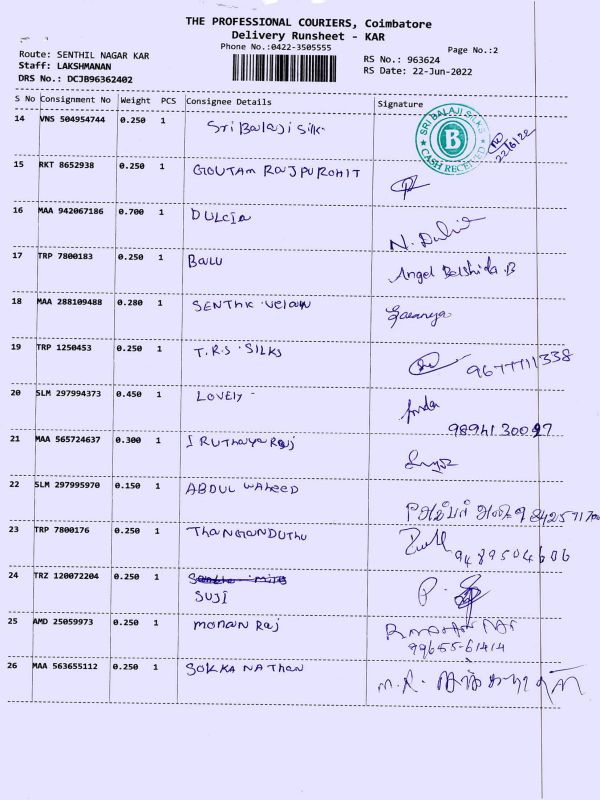 THE PROFESSIONAL COURIERS, Coimbatore
Delivery Runsheet - KAR
Phone No.:0422-3505555
Page No.:2
Route: SENTHIL NAGAR KAR
Staff: LAKSHMANAN
DRS No.: DCJB96362402
RS No.: 963624
RS Date: 22-Jun-2022
S No Consignment No Weight PCS Consignee Details Signature
14 VNS 504954744 0.250 1 Sri Balaji Silk.
SRI BALAJI SILKS
B
CASH RECEIVED
22/6/22
15 RKT 8652938 0.250 1 GOUTAM RAJPUROHIT
16 MAA 942067186 0.700 1 DULCIA
17 TRP 7800183 0.250 1 BALU
18 MAA 288109488 0.280 1 SENTHIL VELAN
19 TRP 1250453 0.250 1 T.R.S SILKS 9677711338
20 SLM 297994373 0.450 1 LOVELY
21 MAA 565724637 0.300 1 IRUTHAYA RAJ
22 SLM 297995970 0.150 1 ABDUL WAHEED
23 TRP 7800176 0.250 1 9489504606
24 TRZ 120072204 0.250 1
SUJI
25 AMD 25059973 0.250 1 MOHAN RAJ
99655-61414
26 MAA 563655112 0.250 1 SOKKANATHAN